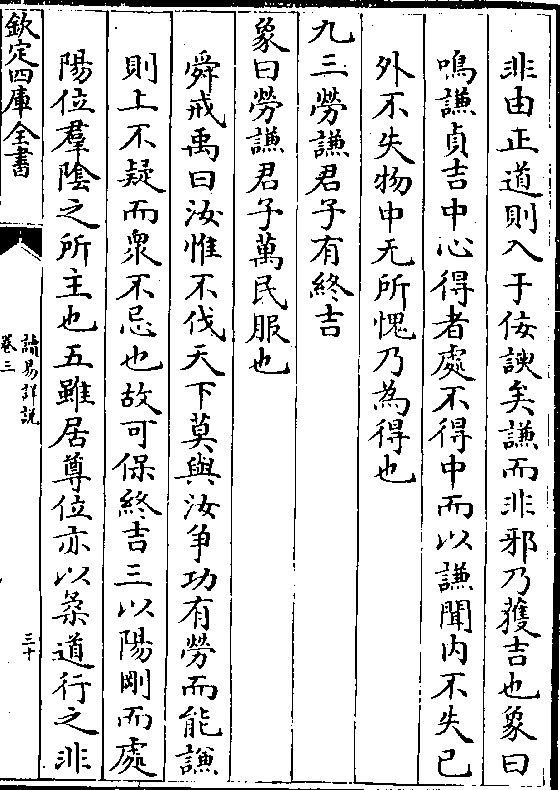 非由正道則入于佞諛矣謙而非邪乃獲吉也象曰
鳴謙貞吉中心得者處不得中而以謙聞内不失已
外不失物中无所愧乃為得也
九三勞謙君子有終吉
象曰勞謙君子萬民服也
舜戒禹曰汝惟不伐天下莫與汝争功有勞而能謙
則上不疑而衆不忌也故可保終吉三以陽剛而處
陽位羣陰之所主也五雖居尊位亦以柔道行之非
欽定四庫全書
讀易詳説
卷三
三十